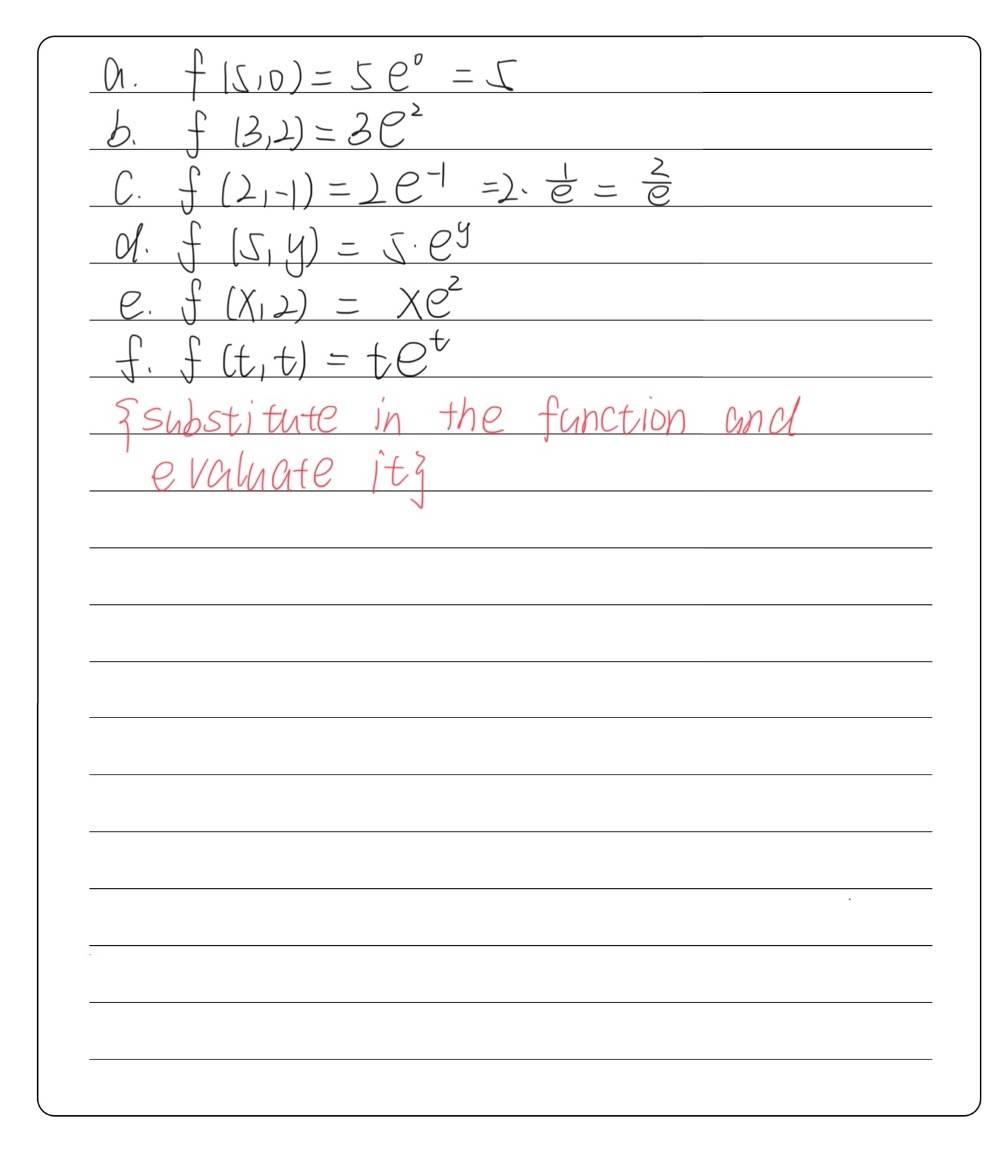 a. f(5,0) = 5e⁰ = 5
b. f (3,2) = 3e²
c. f (2,-1) = 2e⁻¹ = 2· 1/e = 2/e
d. f (5, y) = 5·eʸ
e. f (x,2) = xe²
f. f (t, t) = teᵗ
{substitute in the function and
evaluate it}